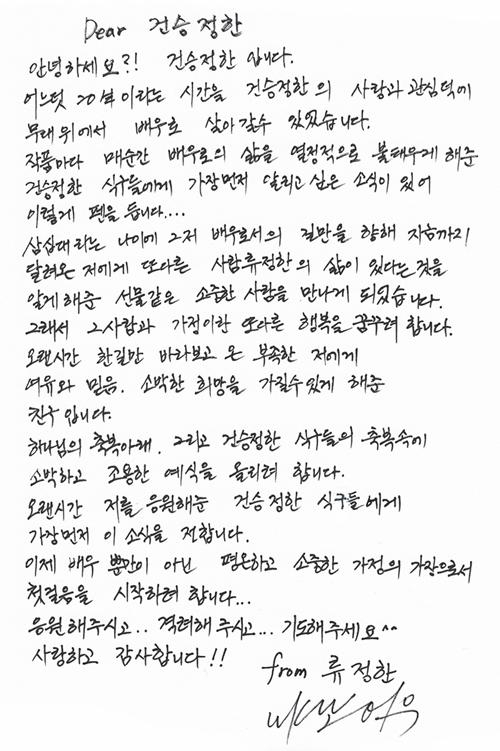 Dear 건승정한
안녕하세요?! 건승정한 입니다.
어느덧 20년이라는 시간을 건승정한의 사랑과 관심덕에
무대위에서 배우로 살아 갈수 있었습니다.
작품마다 매순간 배우로의 삶을 열정적으로 불태우게 해준
건승정한 식구들에게 가장먼저 알리고 싶은 소식이 있어
이렇게 펜을 듭니다....
삼십대라는 나이에 그저 배우로서의 길만을 향해 지금까지
달려온 저에게 또다른 사람류정한의 삶이 있다는 것을
알게 해준 선물같은 소중한 사람을 만나게 되었습니다.
그래서 그사람과 가정이란 또다른 행복을 꿈꾸려 합니다.
오랜시간 한길만 바라보고 온 부족한 저에게
여유와 믿음. 소박한 희망을 가질수있게 해준
친구입니다.
하나님의 축복아래. 그리고 건승정한 식구들의 축복속에
소박하고 조용한 예식을 올리려 합니다.
오랜시간 저를 응원해준 건승정한 식구들에게
가장먼저 이 소식을 전합니다.
이제 배우 뿐만이 아닌 평온하고 소중한 가정의 가장으로서
첫걸음을 시작하려 합니다...
응원해주시고.. 격려해주시고... 기도해주세요^^
사랑하고 감사합니다!!
from 류정한